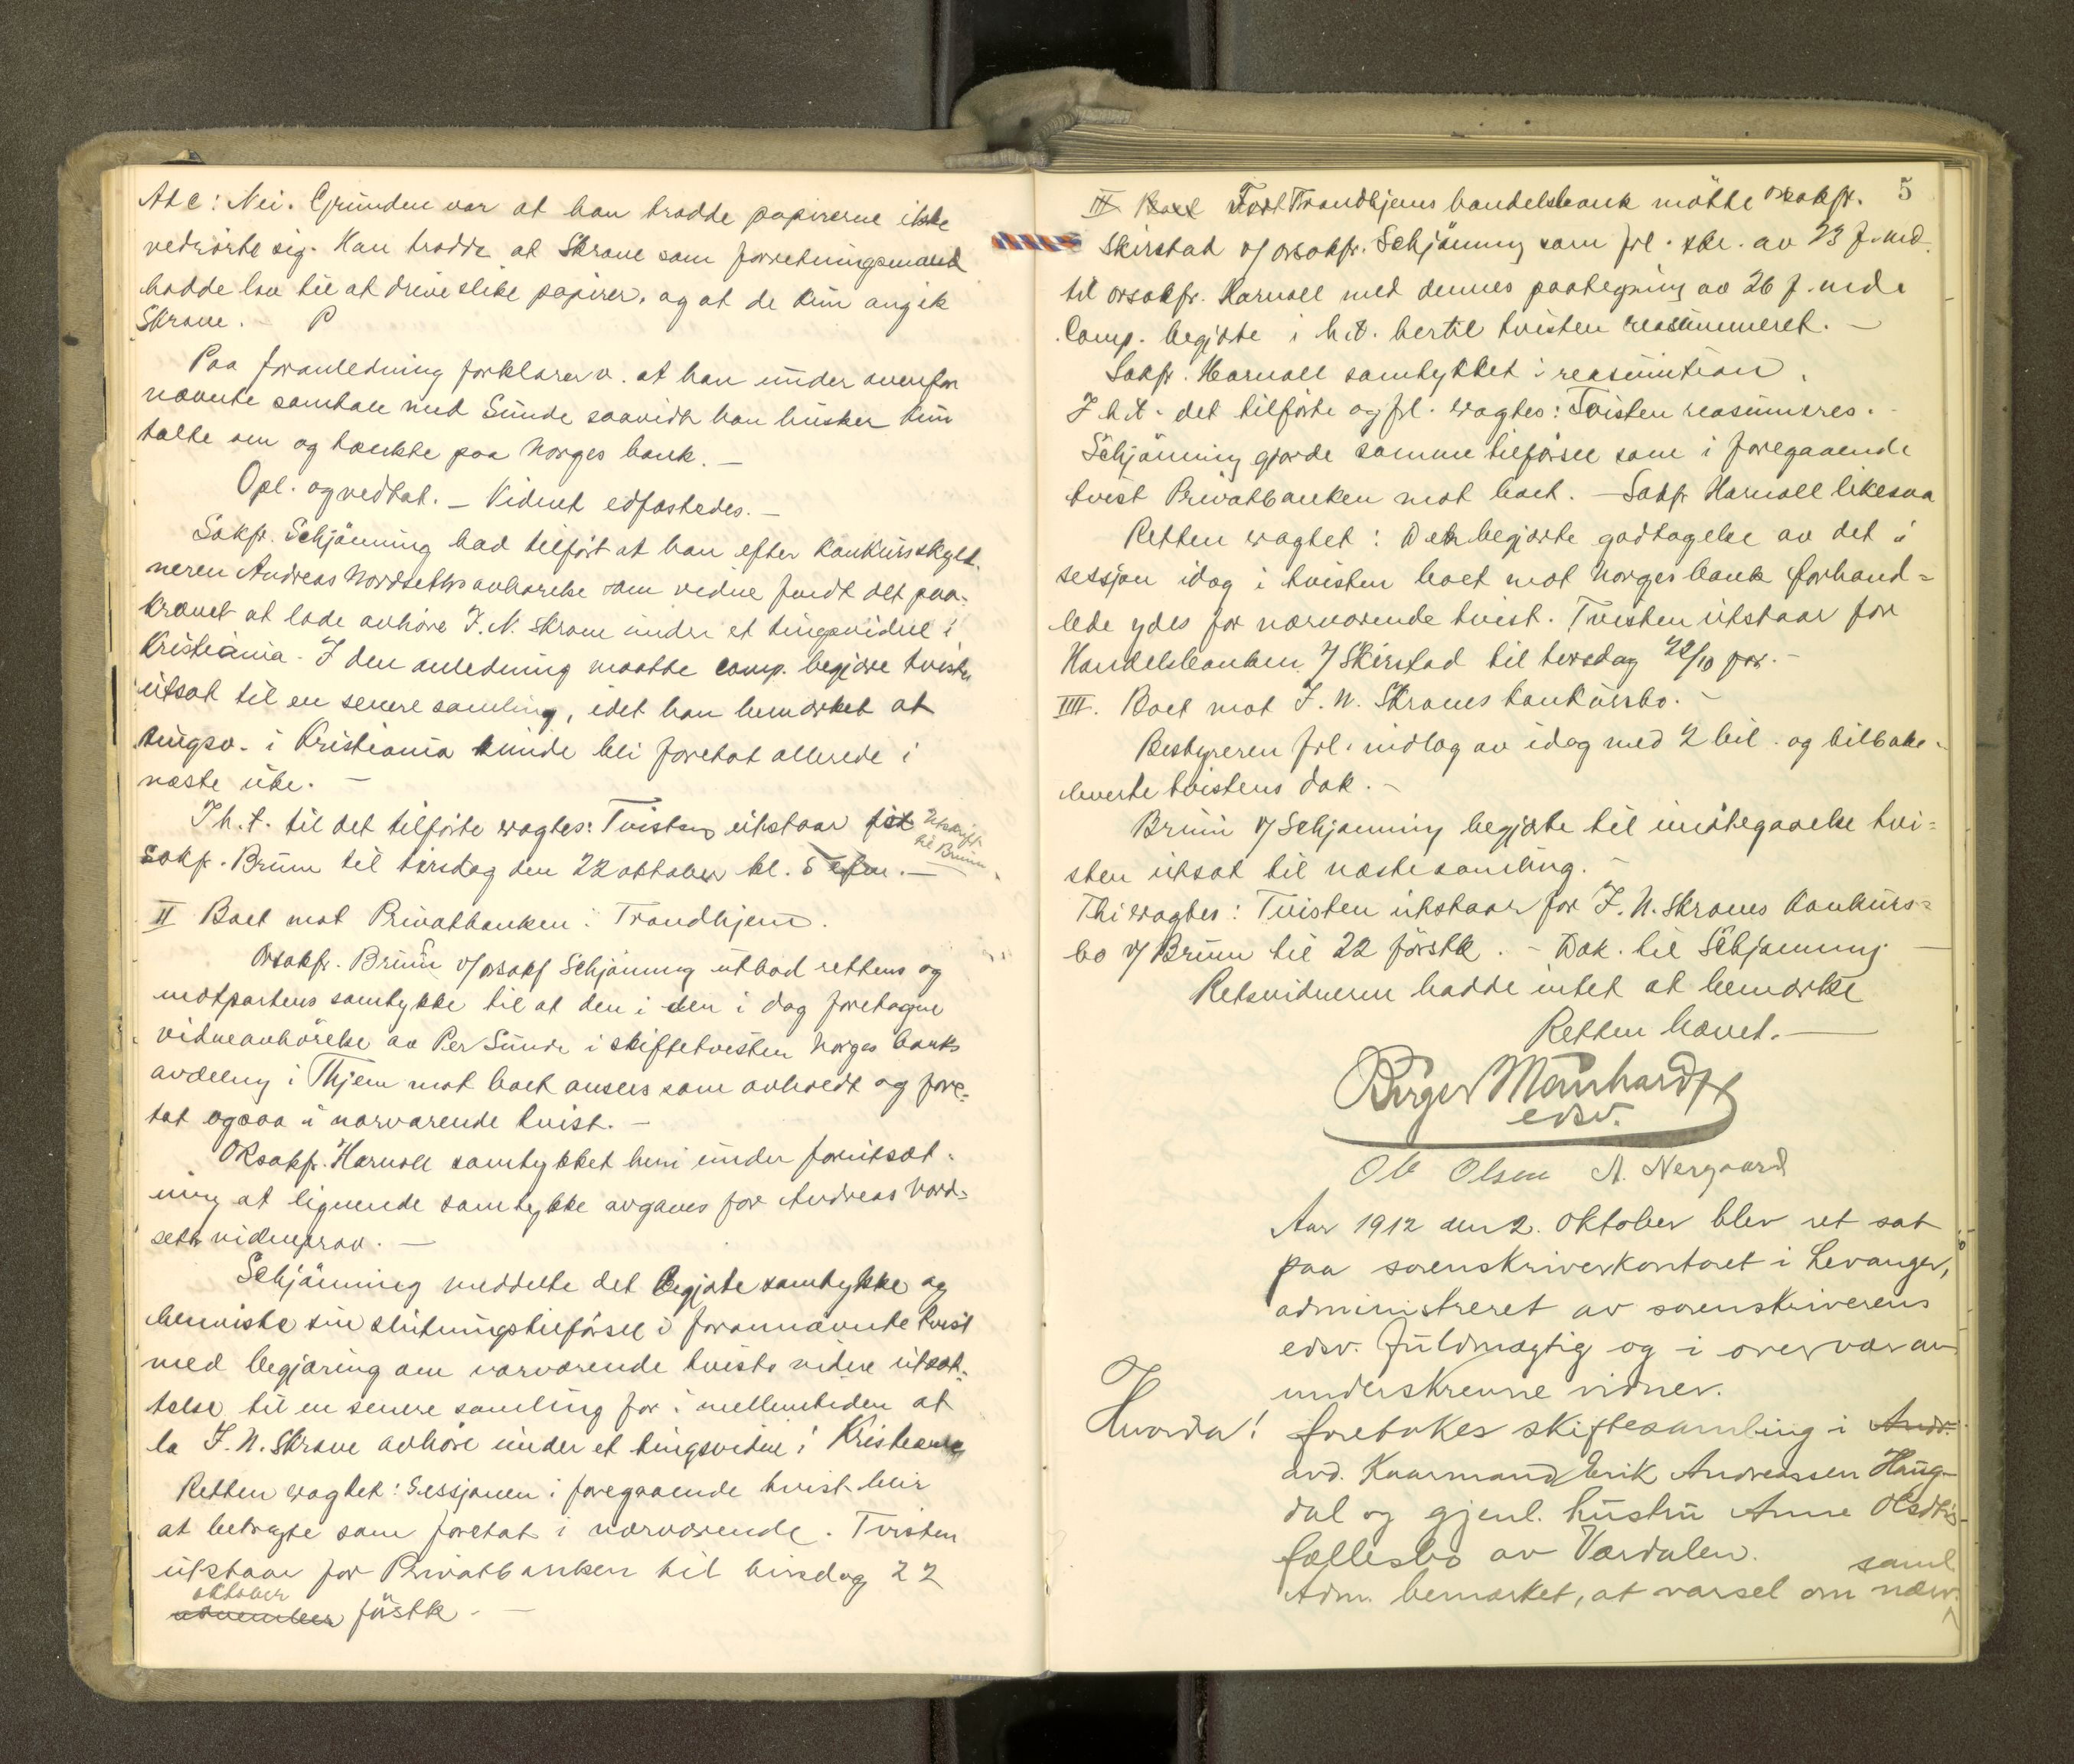 Ad c: Nei. Grunden var at han trodde papirerne ikke
vedrørte sig. Han trodde at Skrove som forretningsmand
hadde lov til at drive slike papirer, og at de kun angik
Skrove. –
Paa foranledning forklarer v. at han under ovenfor
nævnte samtale med Sunde saavidt han husker kun
talte om og tænkte paa Norges bank. –
Opl. og vedtat. – Vidnet edfæstedes. –
Sakfr. Schjönning bad tilført at han efter konkursskyld-
neren Andreas Nordseths avhørelse som vidne fandt det paa-
krævet at lade avhøre J. N. Skrove under et tingsvidne i
Kristiania. I den anledning maatte comp. begjære tvisten
utsat til en senere samling, idet han bemærket at
tingsv. i Kristiania kunde bli foretat allerede i
næste uke. –
I h. t. til det tilførte eragtes: Tvisten utstaar for
Utskrift
til Bruun
sakf. Bruun til tirsdag den 22 oktober kl. 5 efm. –
II Boet mot Privatbanken i Trondhjem.
Orsakfr. Bruun v/ orsakf Schjönning utbad rettens og
motpartens samtykke til at den i den i dag foretagne
vidneavhørelse av Per Sunde i skiftetvisten Norges banks
avdeling i Thjem mot boet ansees som avholdt og fore-
tat ogsaa i nærværende tvist. –
ORsakfr. Harnoll samtykket heri under forutsæt-
ning at lignende samtykke avgaves for Andreas Nord-
seth vidneprov. –
Schjönning meddelte det begjærte samtykke og
henviste sin slutningstilførsel i forannævnte tvist
med begjæring om nærværende tvists videre utsæt-
telse til en senere samling for i mellemtiden at
la J. N. Skrove avhøre under et tingsvidne i Kristiania
Retten eragtet: Sessjonen i foregaaende tvist blir
at betragte som foretat i nærværende. Tvisten
utstaar for Privatbanken til tirsdag 22
oktober
november førstk. –
5
III Boet For Trondhjems handelsbank møtte orsakfr.
Skirstad v/ orsakfr. Schjönning som frl. skr. av 23 f. md.
til orsakfr. Harnoll med dennes paategning av 26 f. md.
Comp. begjærte i h.t. hertil tvisten reassumeret. –
Sakfr. Harnoll samtykket i reasumtion.
I h.t. det tilførte og frl. eragtes: Tvisten reasumeres.
Schjönning gjorde samme tilførsel som i foregaaende
tvist Privatbanken mot boet. – Sakfr Harnoll likesaa
Retten eragtet: Den begjærte godtagelse av det i
sessjon idag i tvisten boet mot Norges bank forhand-
lede ydes for nærværende tvist. Tvisten utstaar for
Handelsbanken v/ Skirstad til tirsdag 22/10 –
IIII. Boet mot J. N. Skroves konkursbo. –
Bestyreren frl. indlæg av idag med 2 bil. og tilbake-
leverte tvistens dok. –
Bruun v/ Schjønning begjærte til imøtegaaelse tvi-
sten utsat til næste samling. –
Thi eragtes: Tvisten utstaar for J. N. Skroves konkurs-
bo v/ Bruun til 22 førstk. – Dok. til Schjønning –
Retsvidnerne hadde intet at bemærke
Retten hævet. –
Birger Meinhardt
edsv.
Ole Olsen A. Nergaard
Aar 1912 den 2. Oktober blev ret sat
paa sorenskriverkontoret i Levanger,
administreret av sorenskriverens
edsv. fuldmægtig og i overvær av
underskrevne vidner.
Hvorda! foretokes skiftesamling i Andr.
avd. Kaarmand Erik Andreassen Haug-
dal og gjenl. hustru Anne Olsdtrs
fællesbo av Værdalen.
saml
Adm. bemærket, at varsel om nærv.